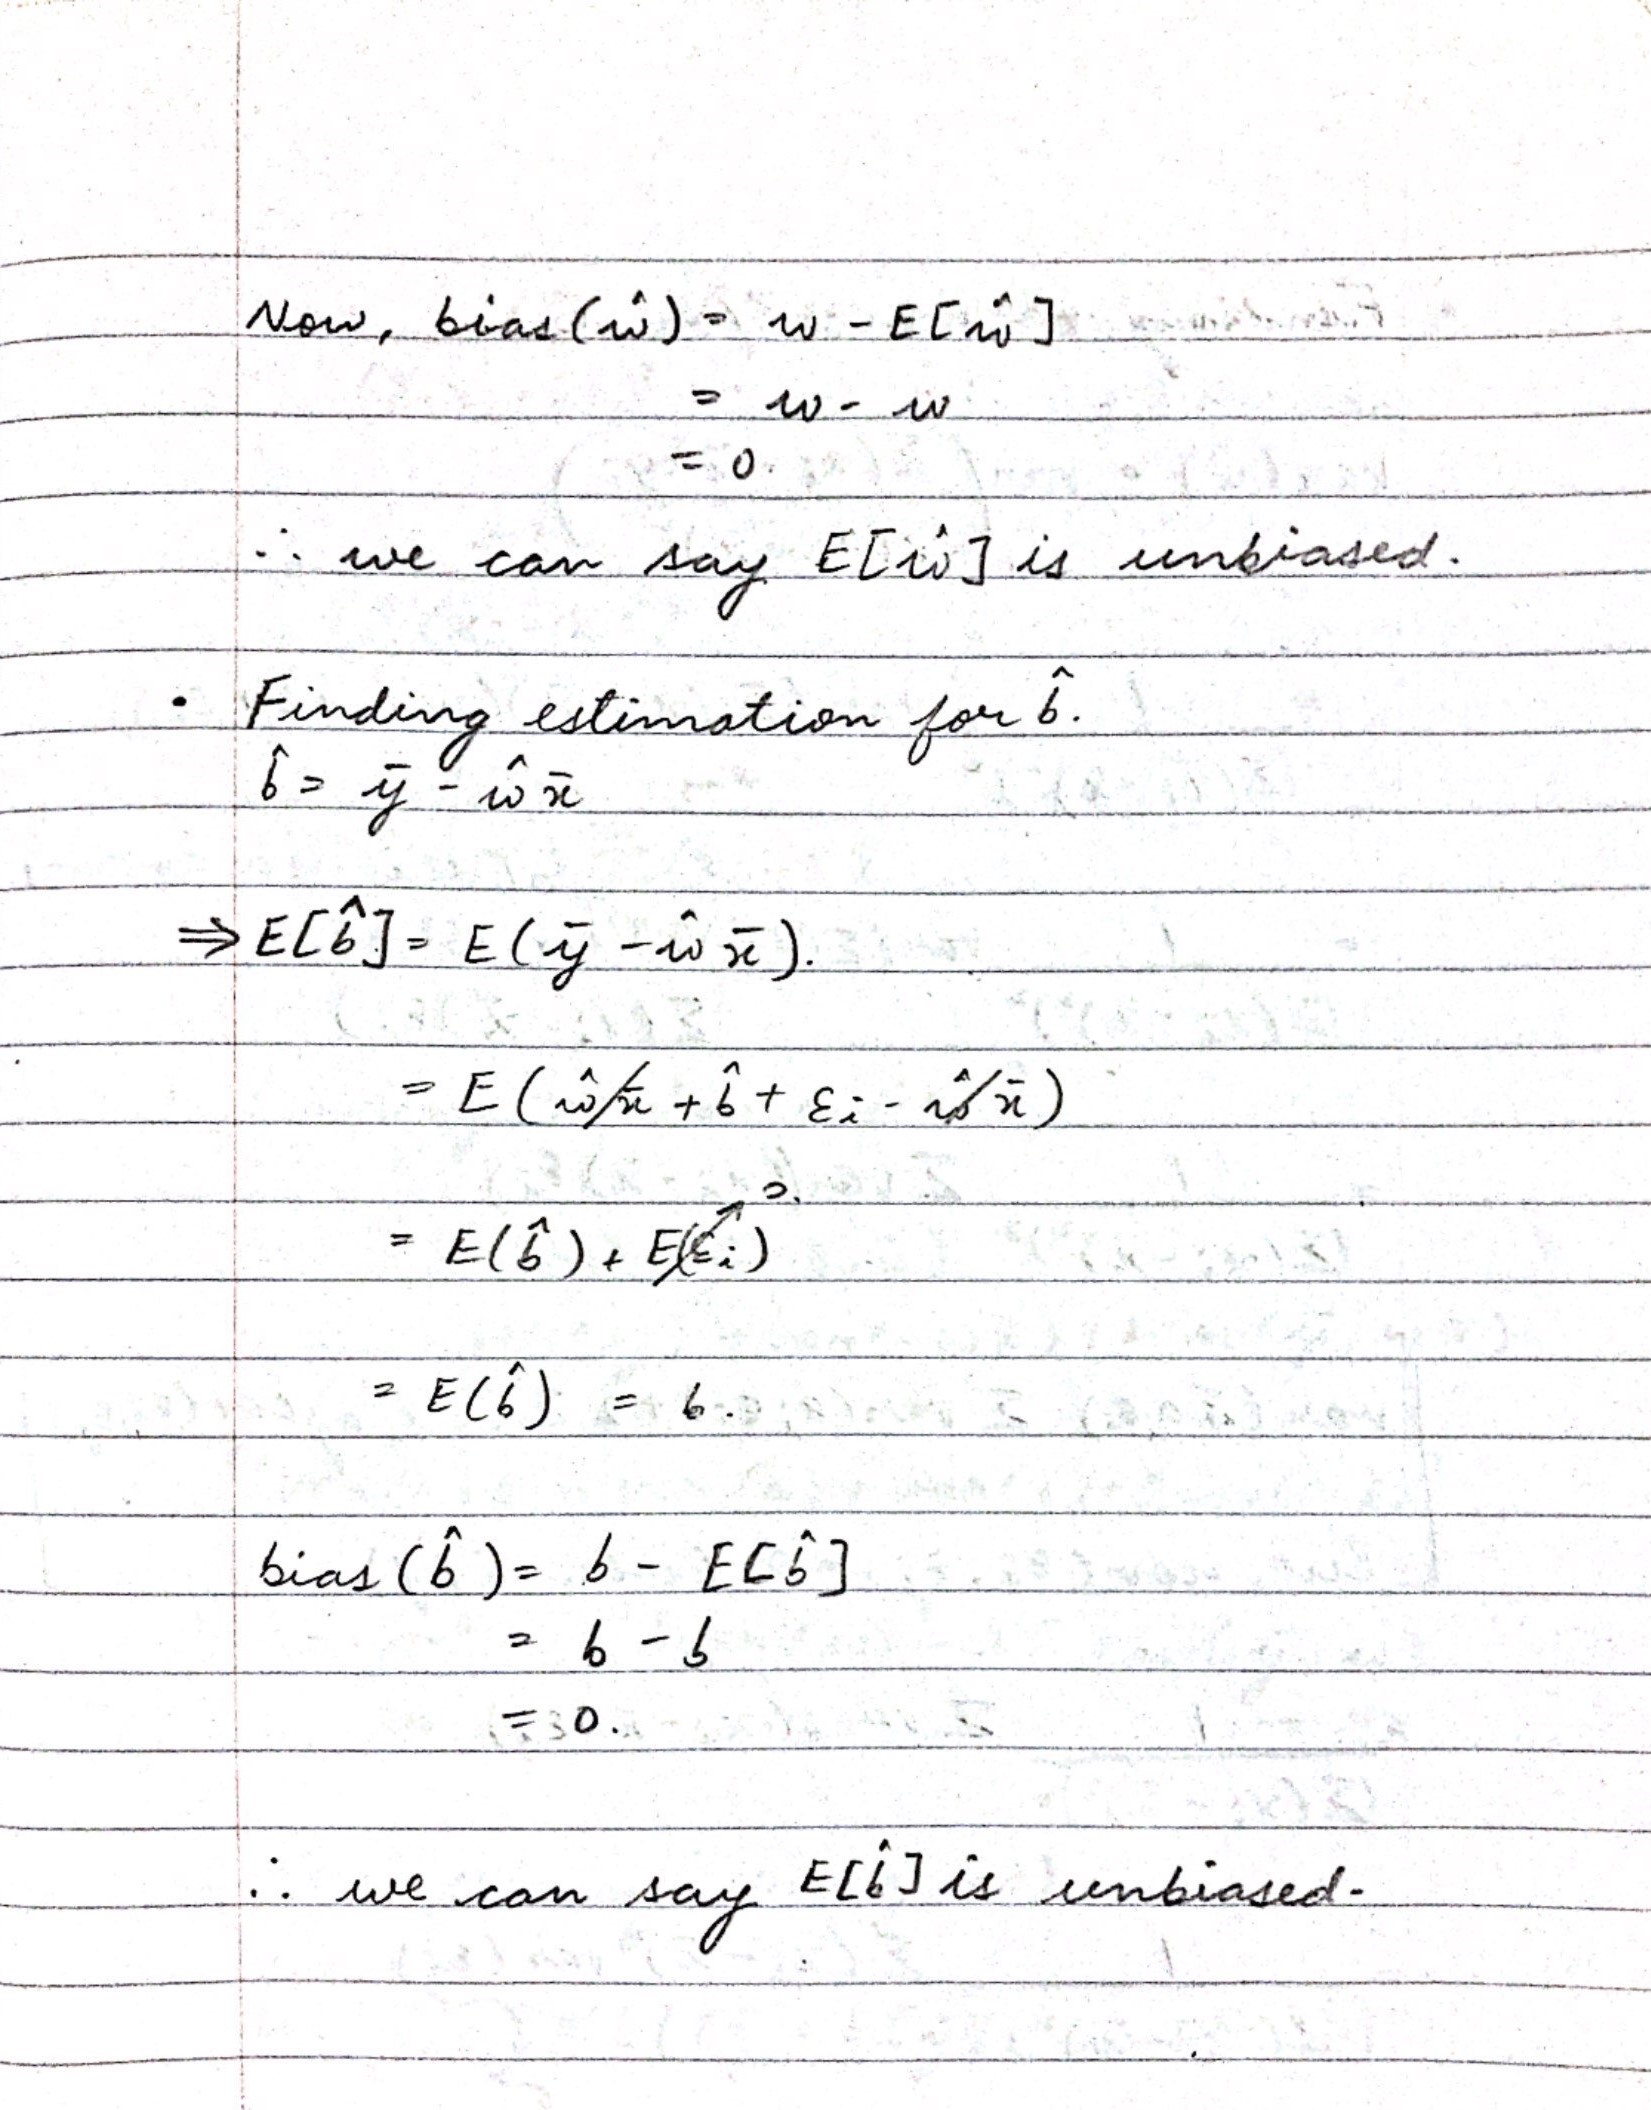 Now, bias(ŵ) = w - E[ŵ]
= w - w
= 0.
∴ we can say E[ŵ] is unbiased.
• Finding estimation for b̂.
b̂ = ȳ - ŵ x̄
⇒ E[b̂] = E(ȳ - ŵ x̄).
= E(ŵx̄ + b̂ + εi - ŵx̄)
0.
= E(b̂) + E(εi)
= E(b̂) = b.
bias(b̂) = b - E[b̂]
= b - b
= 0.
∴ we can say E[b̂] is unbiased.